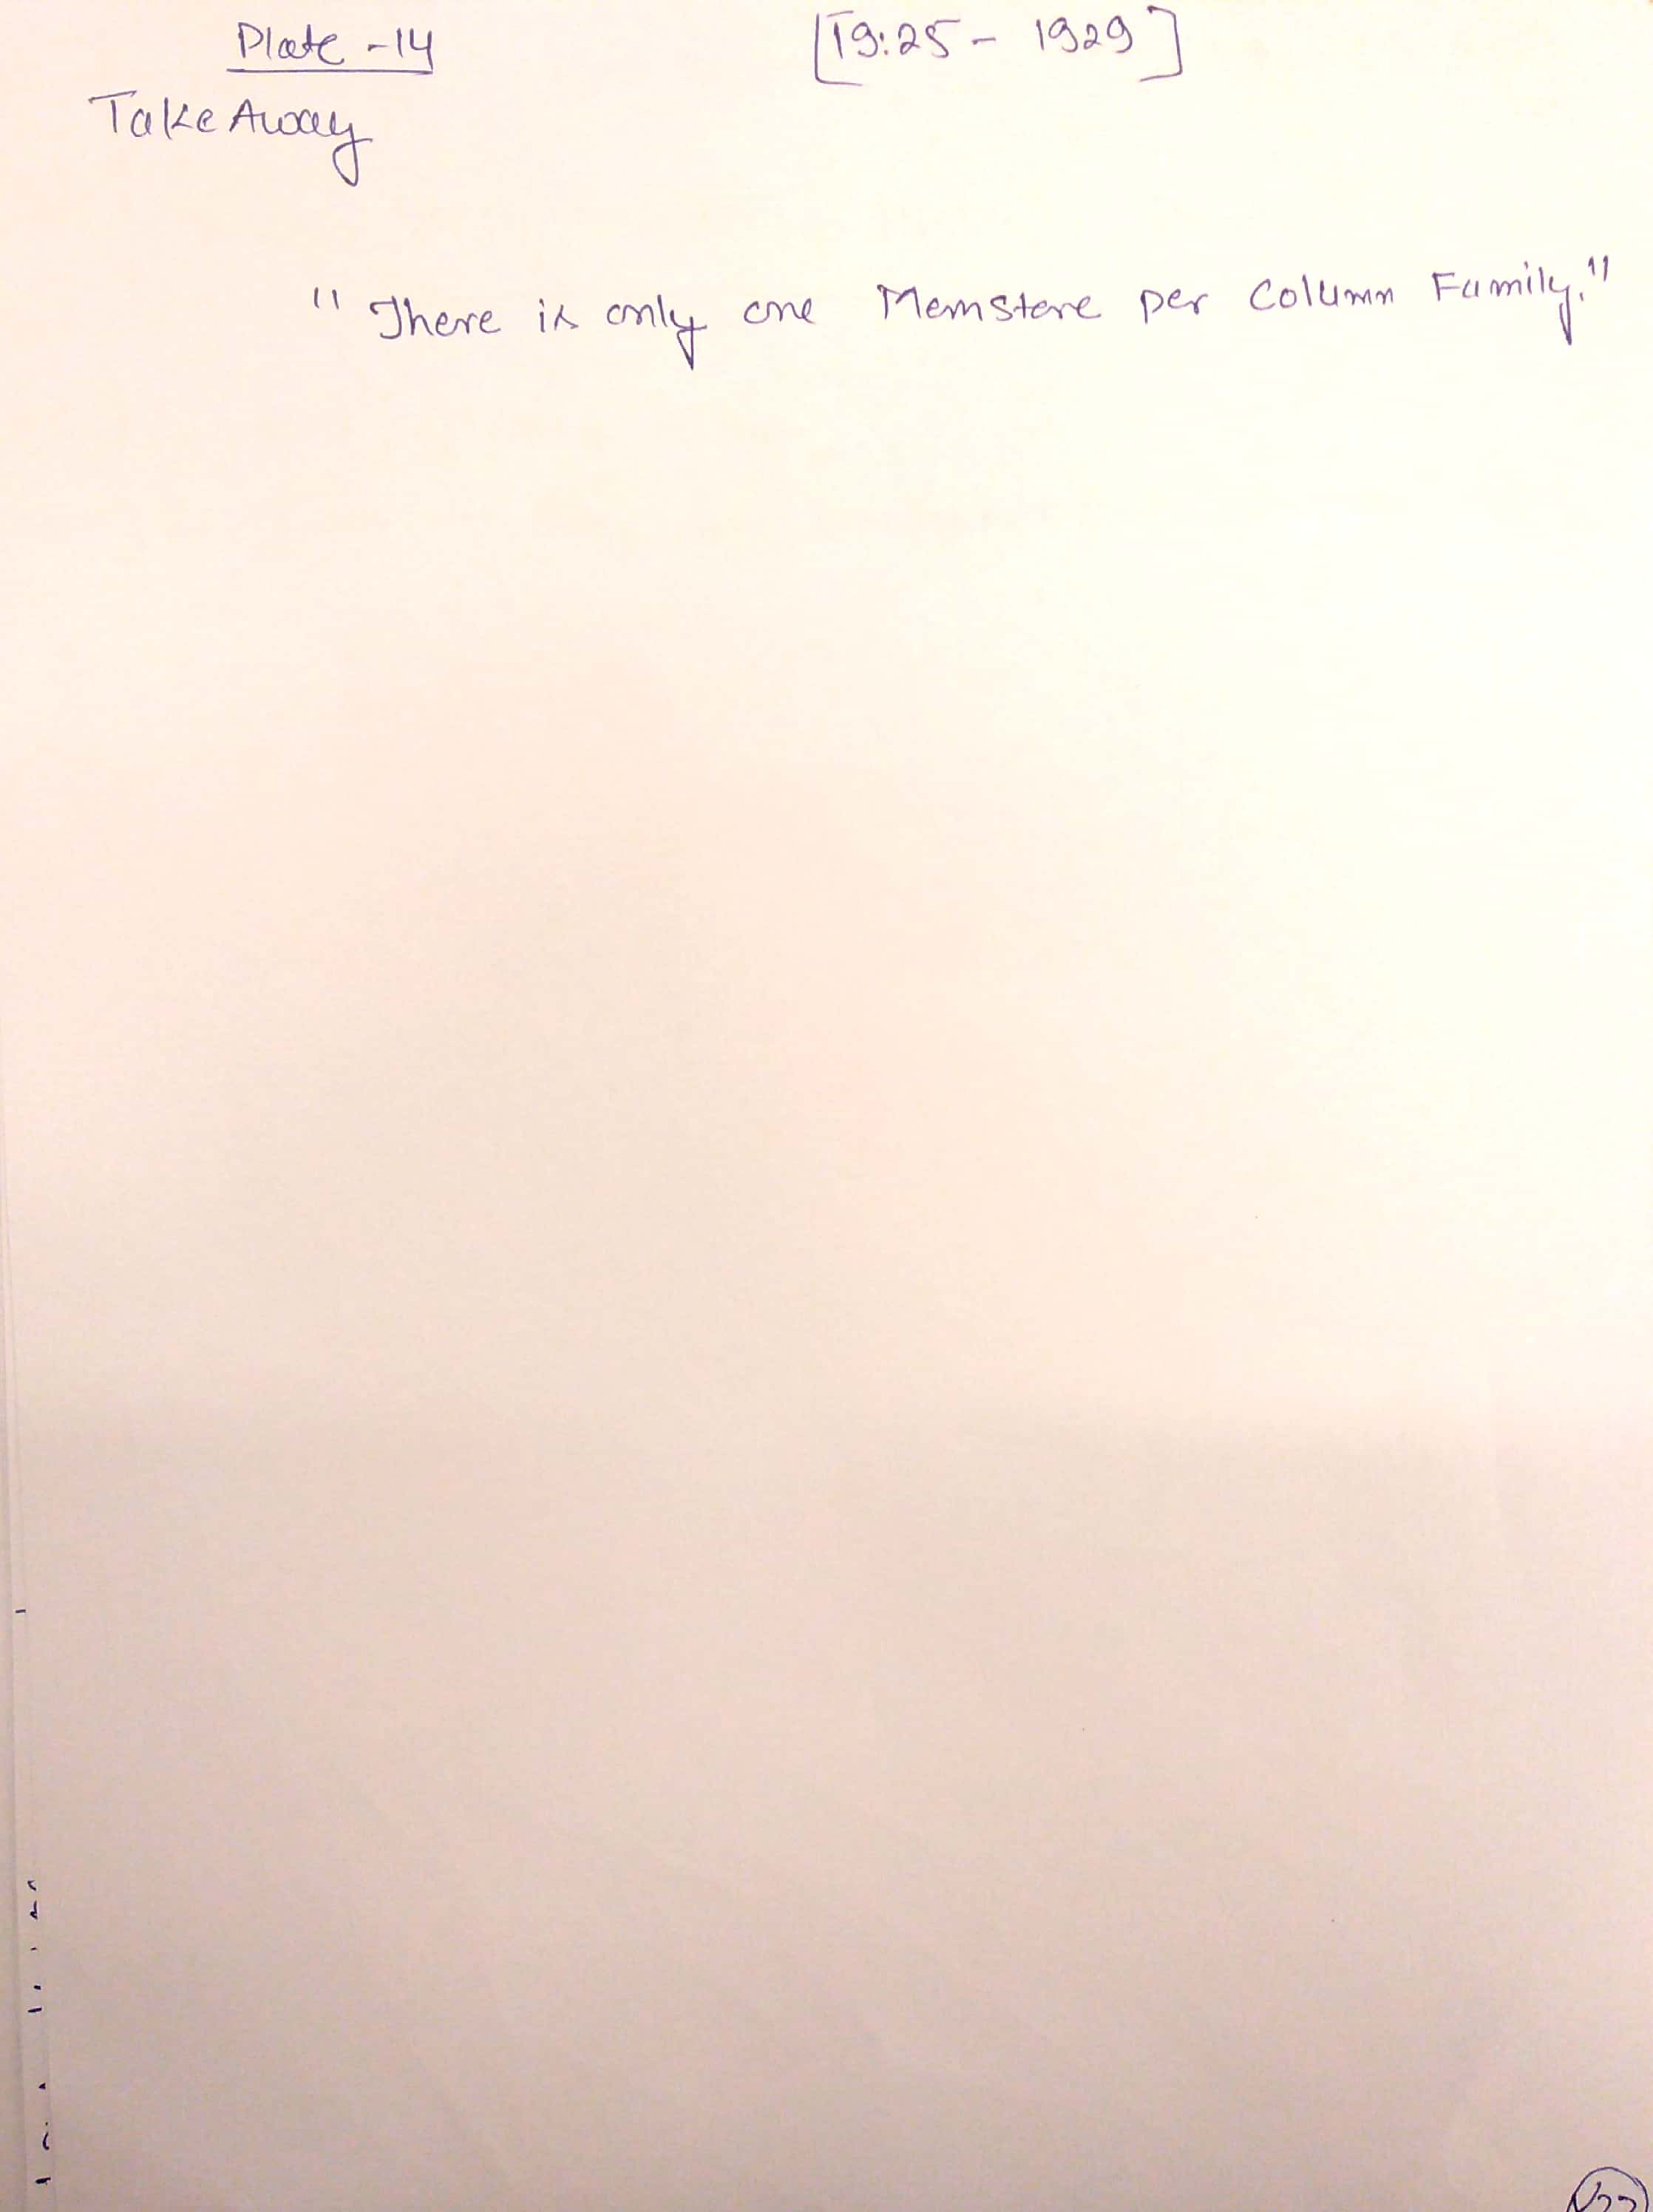 Plate -14 [19:25 - 1929]
Take Away
"There is only one Memstore per Column Family."